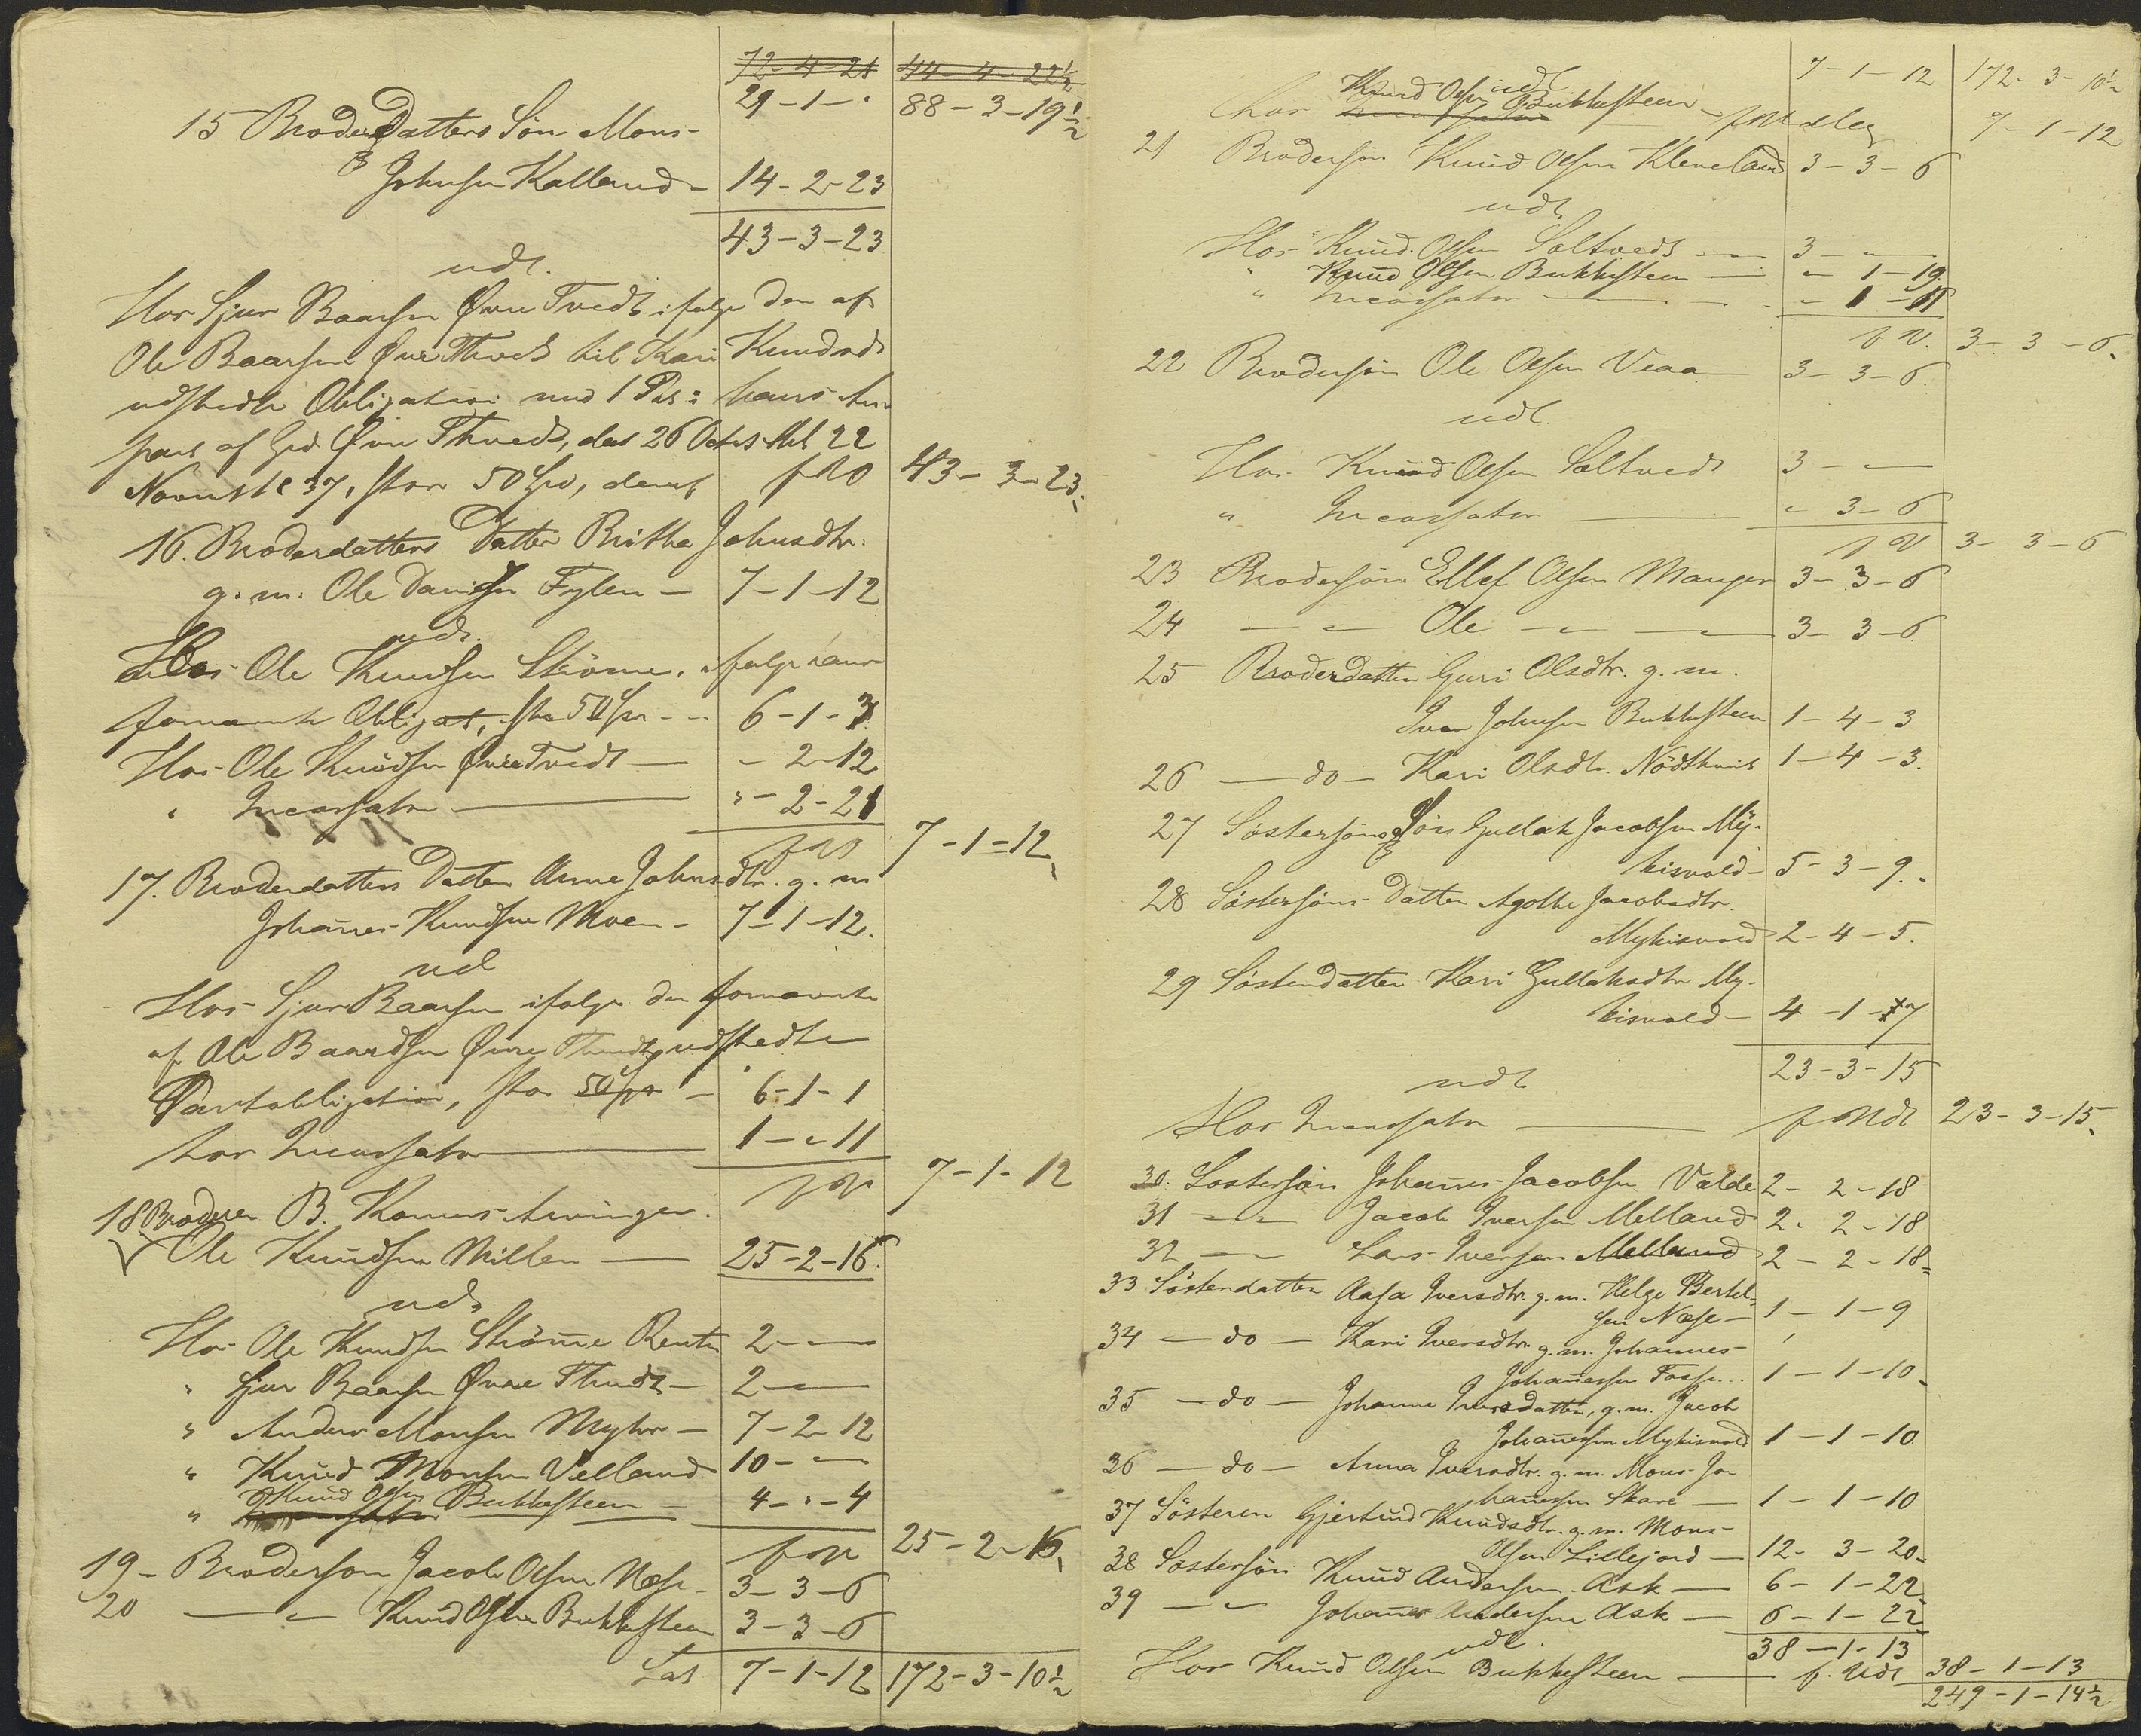 72-4-21 44-4-22½
29-1-" 88-3-19½
15 Broder Datters Søn Mons
Johnsen Kalland - 14-2-23
43-3-23
udl.
Hos Sjur Baarsen Øvre Tvedt ifølge den af
Ole Baarsen Øvre Thvedt til Kari Knudsd
udstedte Obligation med 1 Pr: i hans An-
part af Grd. Øvre Thvedt, dat 26 Octr, thl 22
Novemb 37, stor 50 Spd, deraf 43-3-23
16. Broderdatters Datter Britha Johnsdtr.
g. m. Ole Danielsen Fylen - 7-1-12
udl.
Hos Ole Knudsen Strömme, ifølge
fornævnte Obligat, stor 50 Spd - 6-1-3
Hos Ole Knudsen Øvre Tvedt - " 2-12
" Incassator - " - 2-21
7-1-12
17. Broderdatters Datter Anne Johnsdtr. g. m
Johannes Knudsen Moen - 7-1-12.
udl
Hos Sjur Baarsen ifølge den fornævnte
af Ole Baardsen Øvre Thvedt udstedte
Pantobligation, stor 50 Spd - 6-1-1
hos Incassator 1-"-11
7-1-12
18 Broderen B. Kones Arvinger.
Ole Knudsen Millen - 25-2-16.
udl
Hos Ole Knudsen Strömme Renter 2-"-
" Sjur Baarsen Øvre Thvedt - 2-"-
" Anders Monsen Myhre - 7-2-12
" Knud Monsen Velland 10-"-
" Knud Olsen Bukkesteen - 4-"-4
25-2-16
19 - Brodersøn Jacob Olsen Næse - 3-3-6
20 - " - Knud Olsen Bukkesteen 3-3-6
Lat 7-1-12 172-3-10½
7-1-12 172-3-10½
udl
hos Knud Olsen Bukkesteen - 7-1-12
21 Brodersøn Knud Olsen Kleveland 3-3-6
udl
Hos Knud Olsen Saltvedt - 3-"-
" Knud Olsen Bukkesteen - " 1-19
" Incassator - " 1-11
3-3-6.
22 Brodersøn Ole Olsen Veaa - 3-3-6.
udl.
Hos Knud Olsen Saltvedt 3-"-
" Incassator - " 3-6
3-3-6
23 Brodersøn Ellef Olsen Manger 3-3-6
24 - " - Ole - " - 3-3-6
25 Broderdatter Guri Olsdtr. g. m.
Iver Johnsen Bukkesteen 1-4-3
26 - do - Kari Olsdtr. Nödtveit 1-4-3.
27 Søstersøns Søn Gullak Jacobsen My-
kisvold - 5-3-9.
28 Søstersøns Datter Agothe Jacobsdtr.
Mykisvold 2-4-5.
29 Søsterdatter Kari Gullaksdtr My-
kisvold - 4-1-7
23-3-15
udl
Hos Incassator - 23-3-15
30. Søstersøn Johannes Jacobsen Valde 2-2-18
31 - " - Jacob Iversen Melland 2-2-18
32 - " - Lars Iversen Melland 2-2-18
33 Søsterdatter Aasa Iversdtr. g. m. Helge Bertel-
sen Næse - 1-1-9
34 - do - Kari Iversdtr. g. m. Johannes
Johannessen Fosse.. 1-1-10
35 - do - Johanne Iversdatter, g. m. Jacob
Johannessen Mykisvold 1-1-10
36 - do - Anna Iversdtr. g. m. Mons Jo-
hannessen Skare - 1-1-10
37 Søsteren Gjertrud Knudsdtr. g. m. Mons
Olsen Lillejord - 12-3-20
38 Søstersøn Knud Andersen Ask - 6-1-22
39 - " - Johannes Andersen Ask - 6-1-22
38-1-13
udl.
Hos Knud Olsen Bukkesteen - f. Udl 38-1-13
249-1-14½